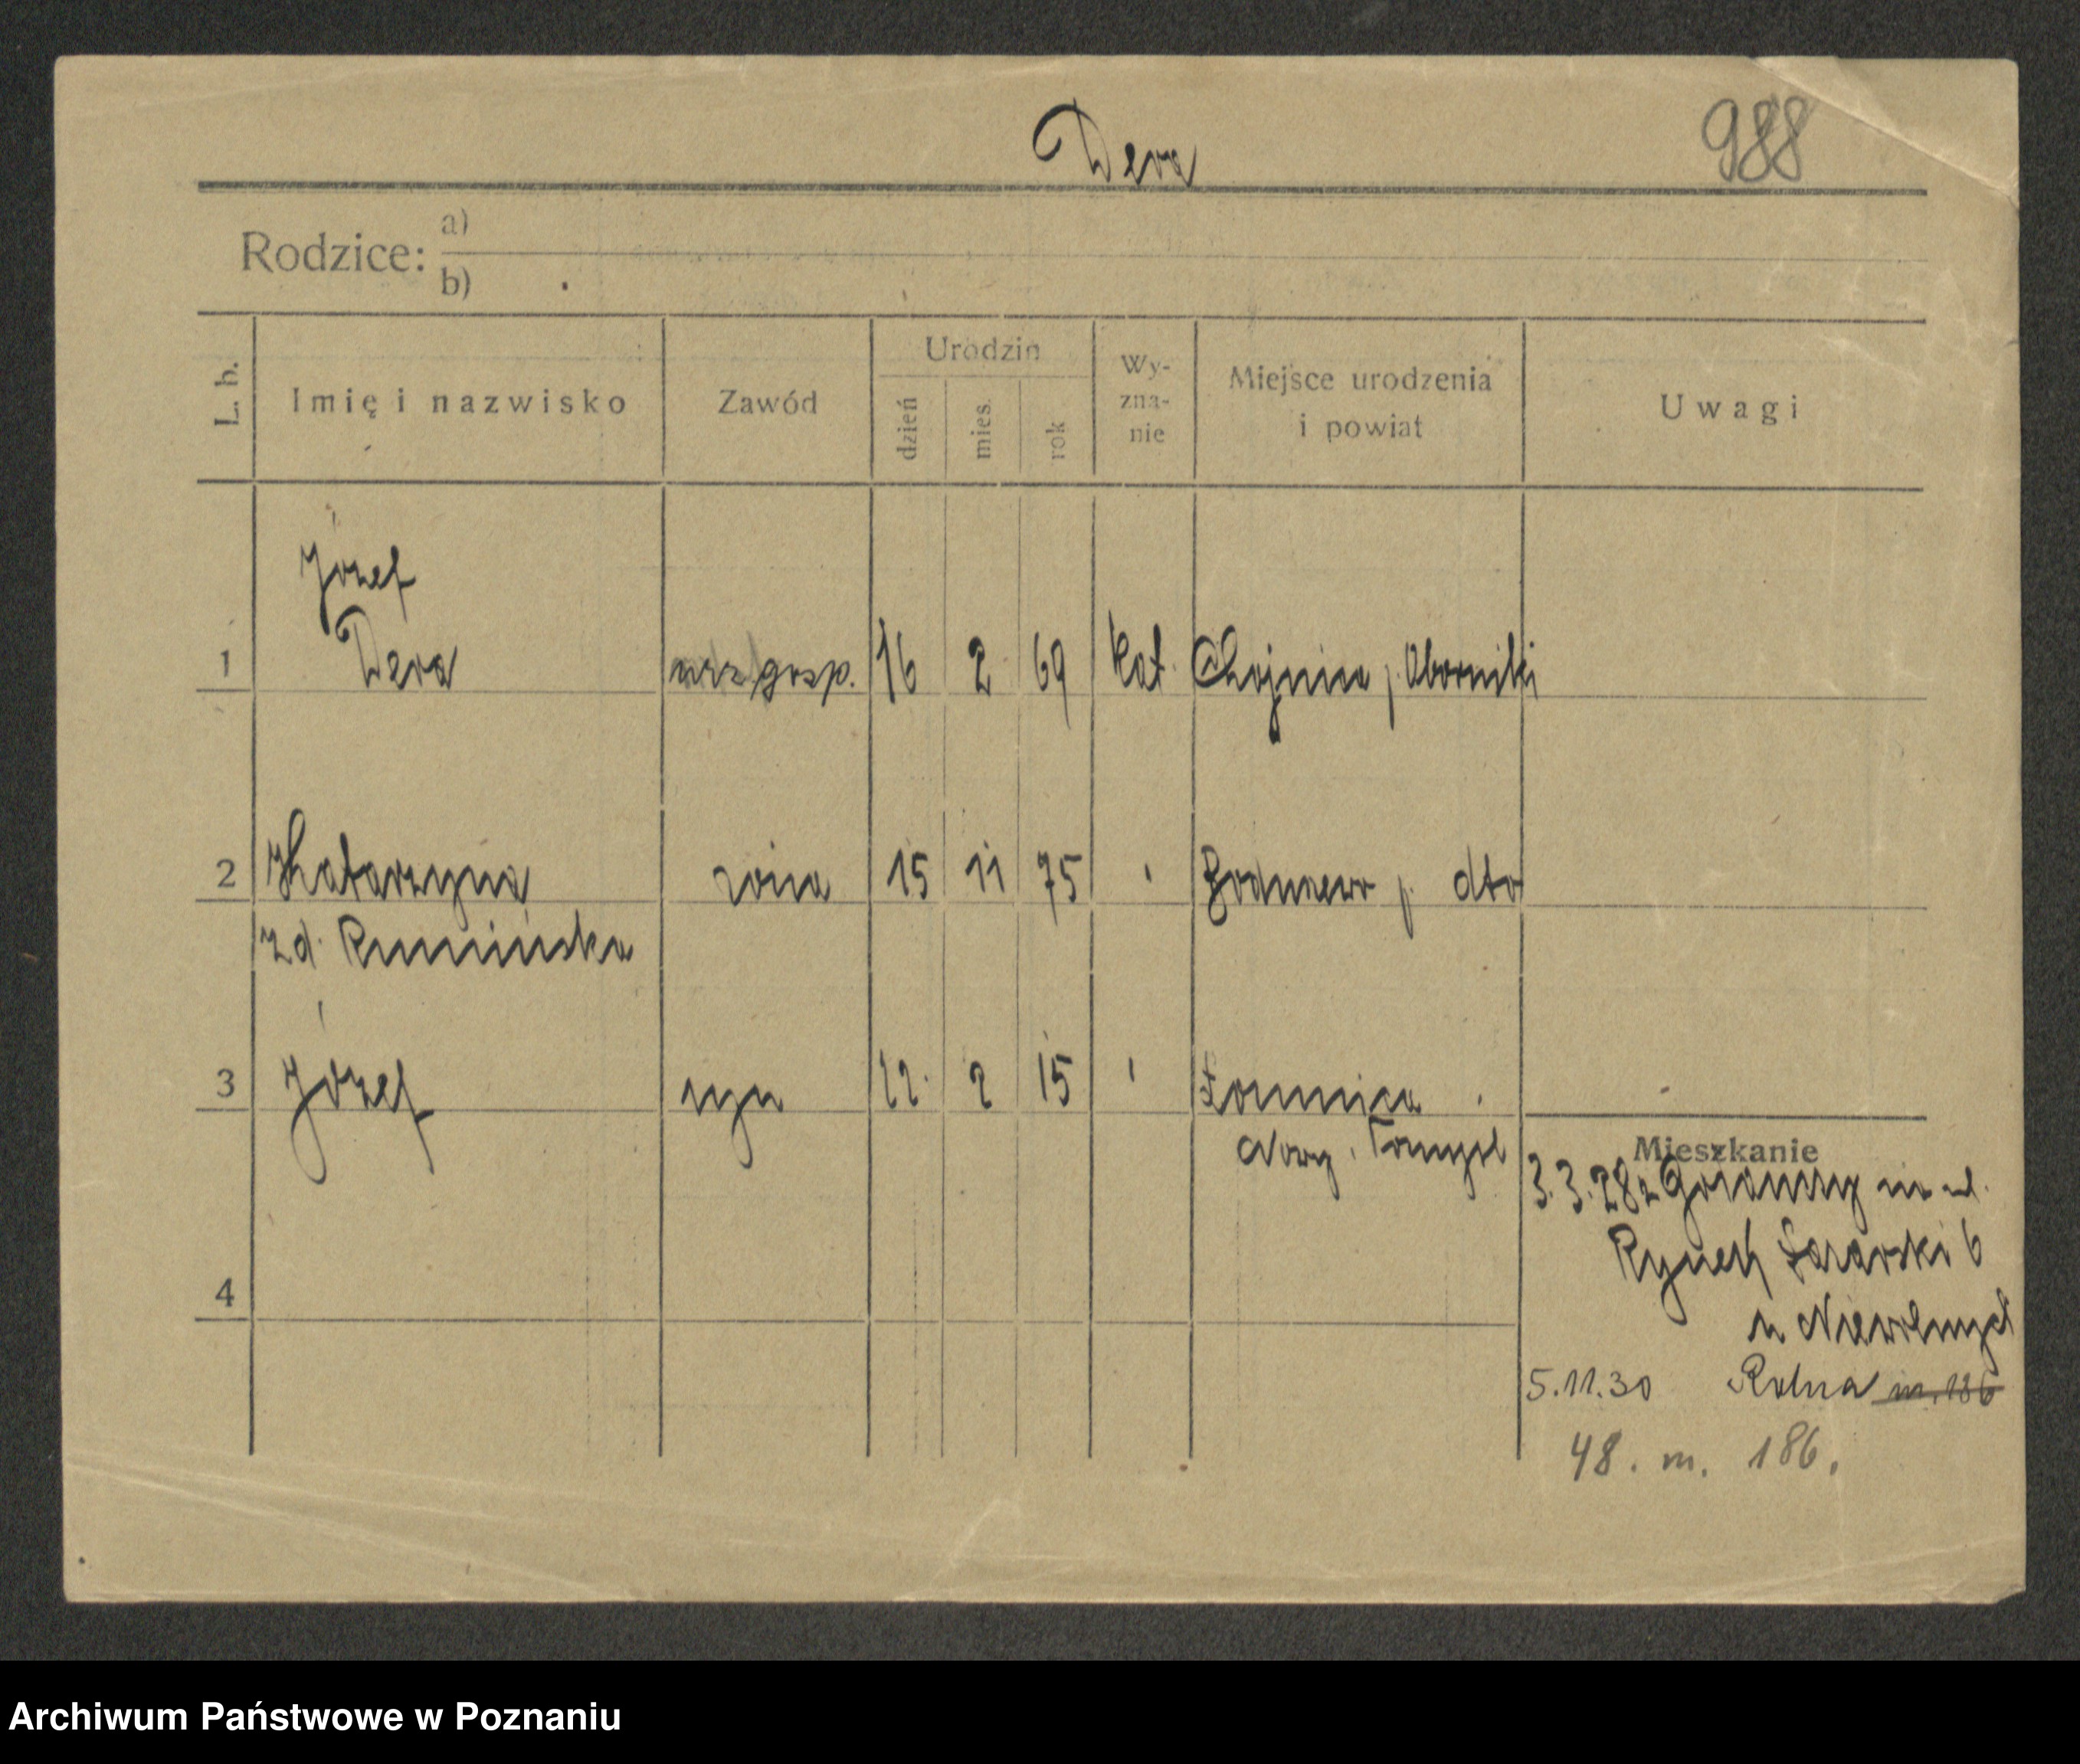 Dera
988
Rodzice: a)
b)
L. b.
Imię i nazwisko
Zawód
Urodzin
dzień
mies.
rok
Wy-
zna-
nie
Miejsce urodzenia
i powiat
Uwagi
Józef
1 Dera urz gosp. 16 2 69 kat. Chojnica p. Oborniki
2 Katarzyna żona 15 11 75 " p. dto
zd. Rumińska
3 Józef syn 22. 2 15 " Łomnica
Nowy Tomyśl
4
Mieszkanie
3.3.28 z na ul.
Rynek Łazarski 6
u
5.11.30 Rolna m. 186
48. m. 186.
Archiwum Państwowe w Poznaniu